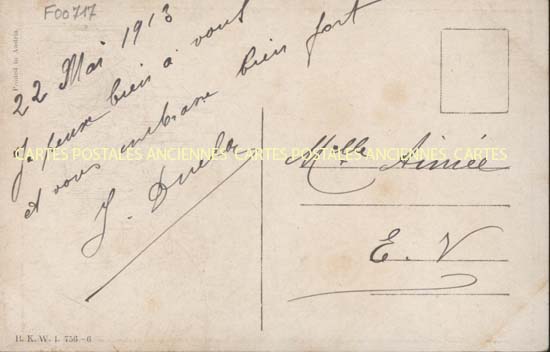 F00717
Printed in Austria
22 Mai 1913
Je pense bien à vous
et vous embrasse bien fort
J.
Mlle Aimée
E. V
CARTES POSTALES ANCIENNES CARTES POSTALES ANCIENNES CARTES
B. K. W. I. 756-6